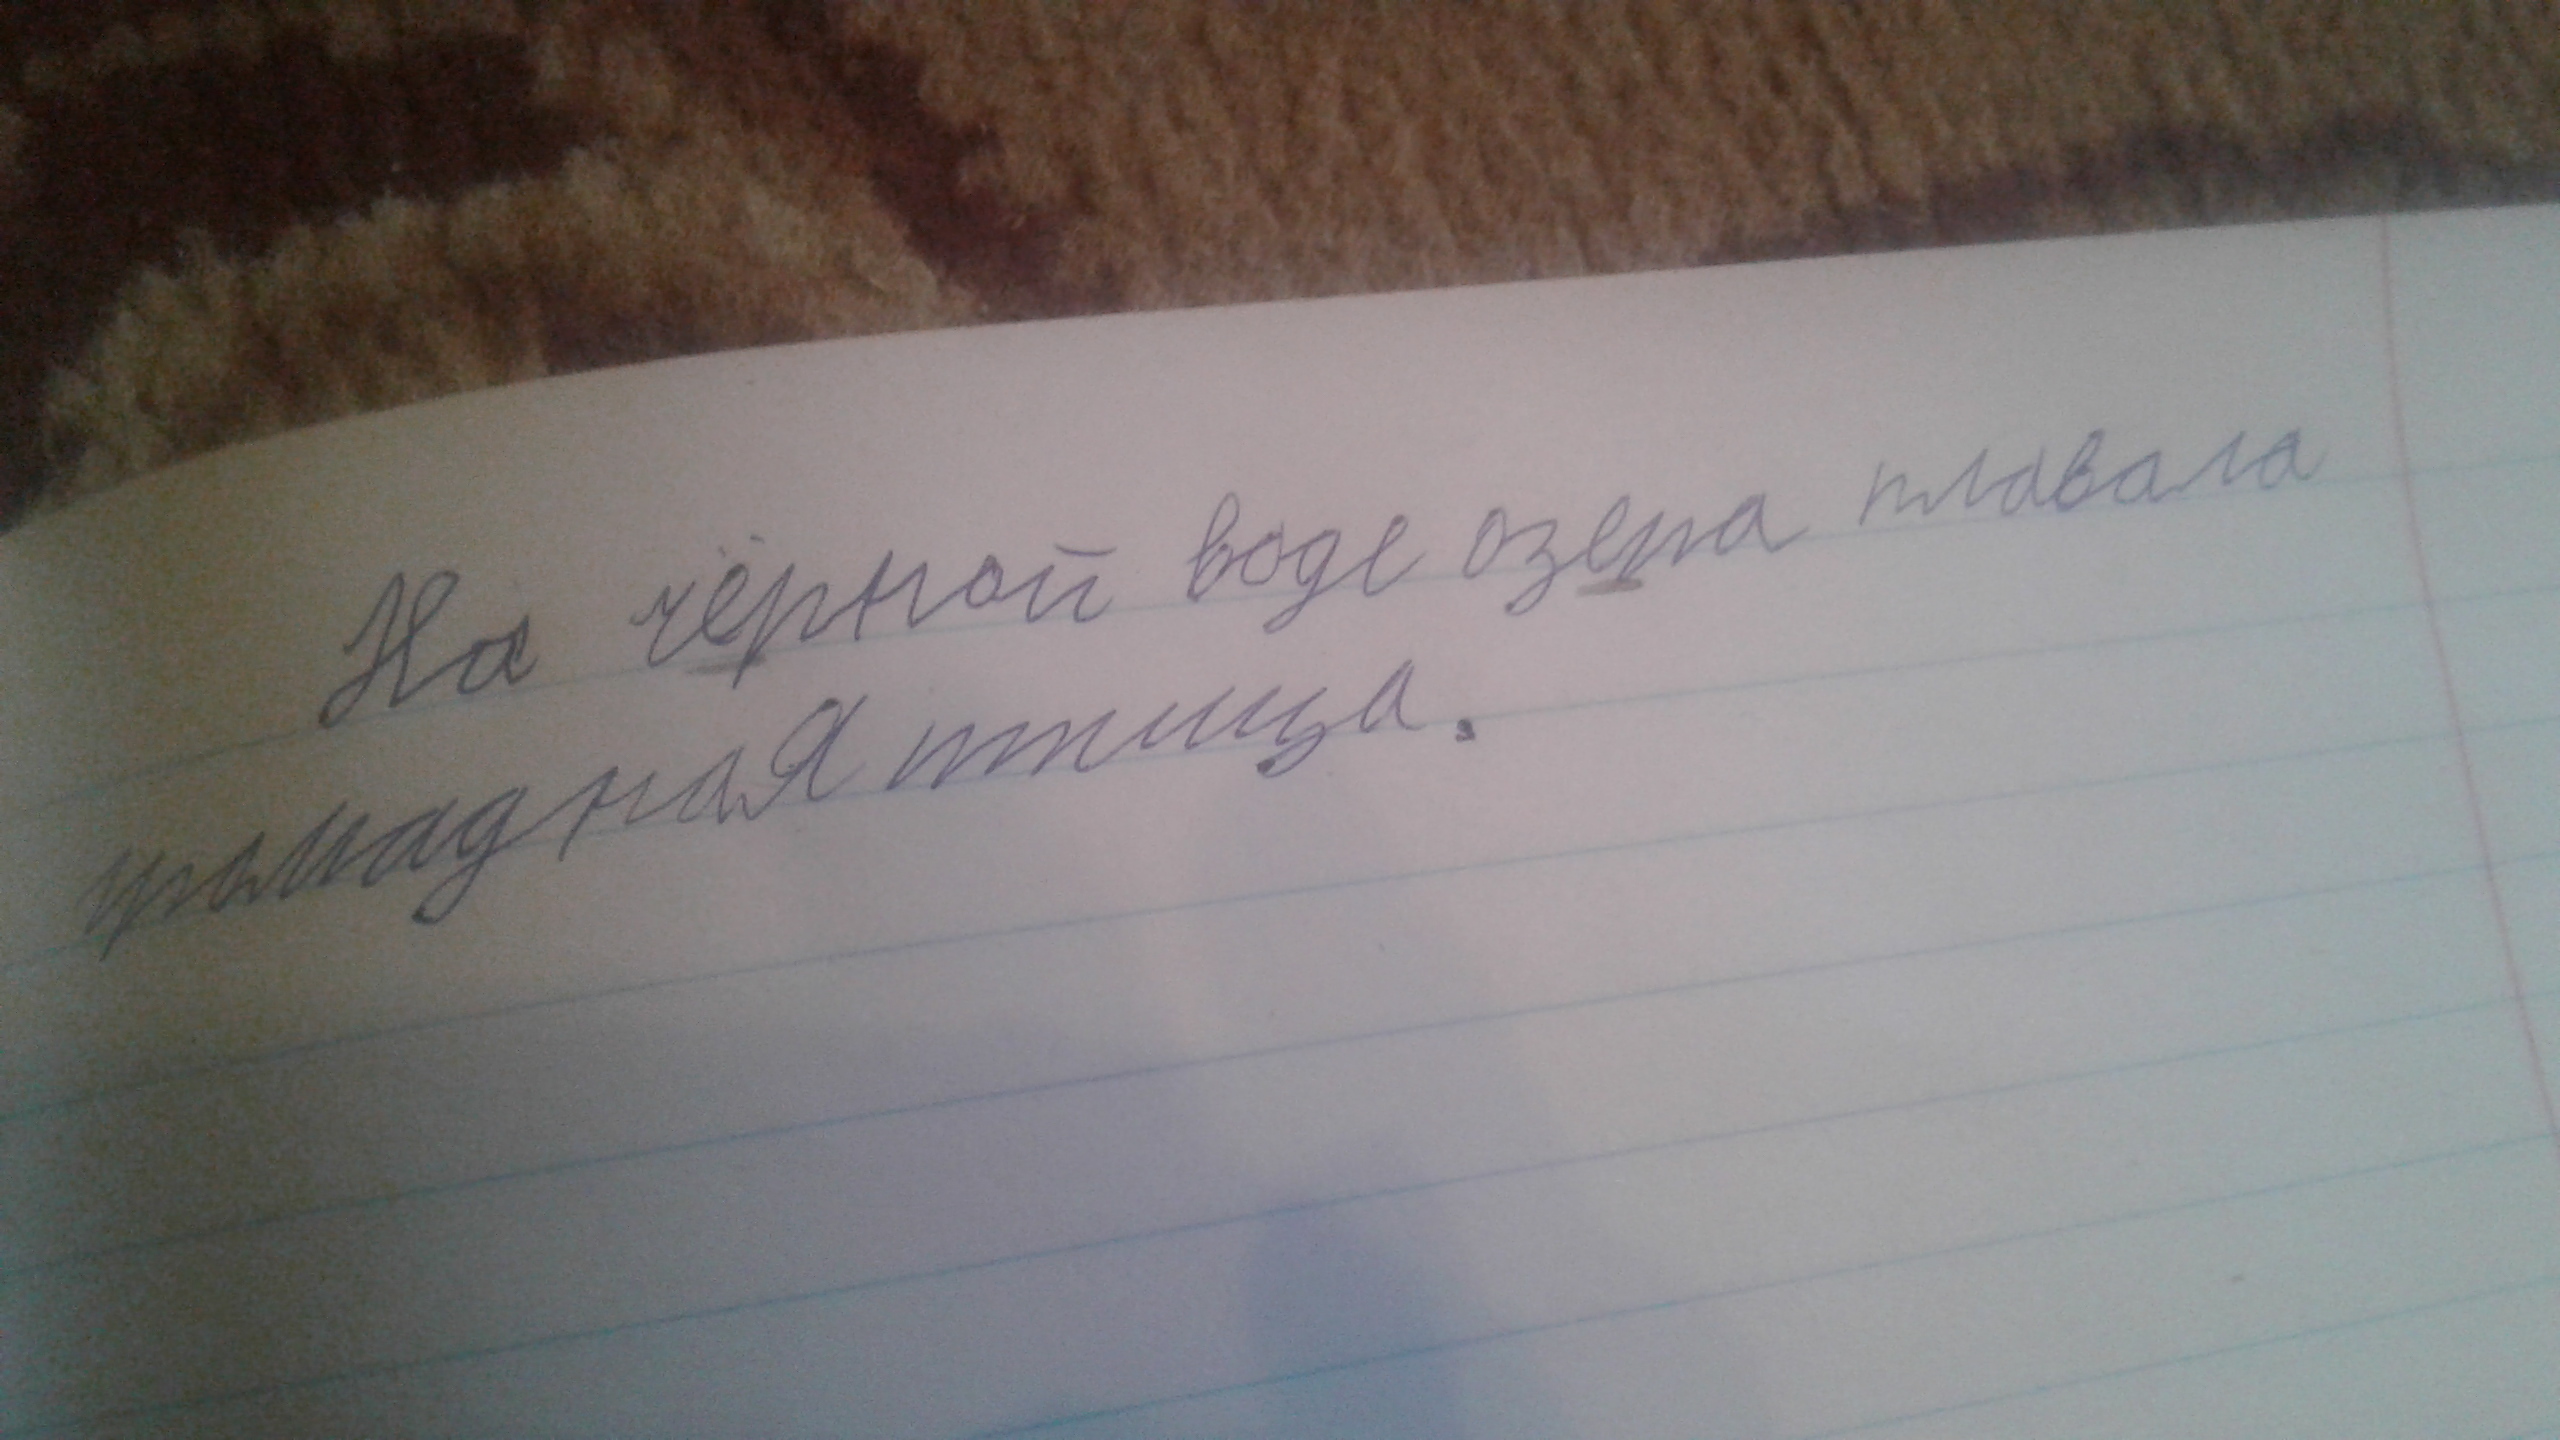 На чёрной воде озера плавала
громадная птица.